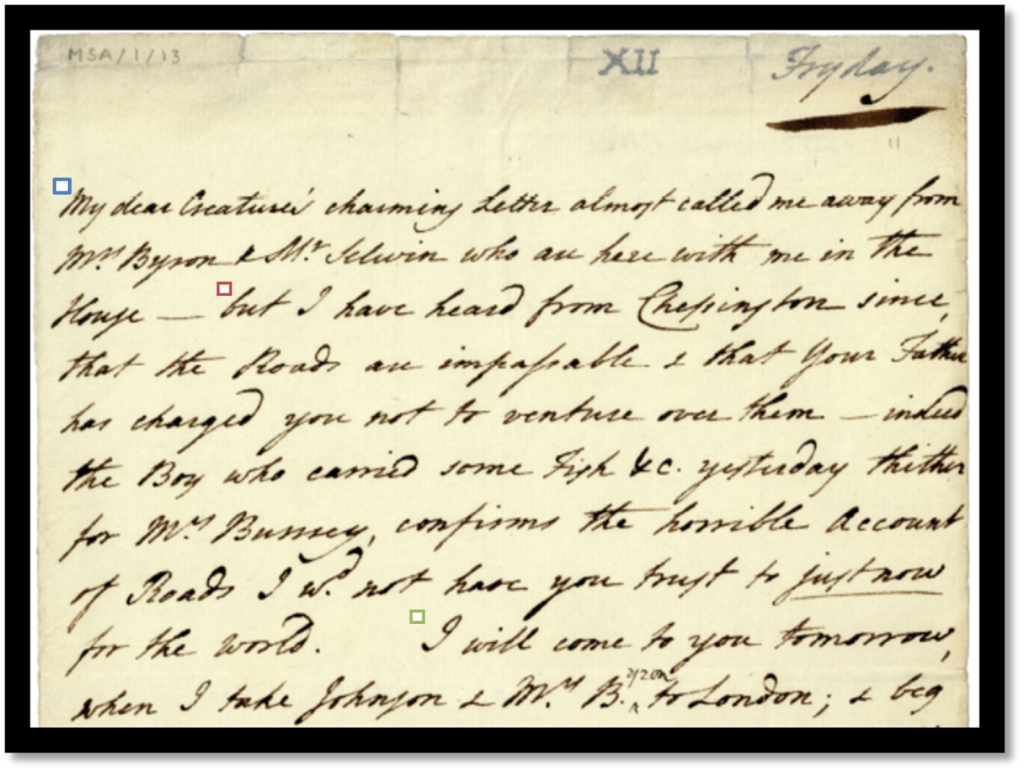 MSA/1/13 XII Fryday.
My dear Creature's charming Letter almost called me away from
Mrs Byron & Mr. Selwin who are here with me in the
House — but I have heard from Chessington since,
that the Roads are impassable & that Your Father
has charged you not to venture over them — indeed
the Boy who carried some Fish &c. yesterday thither
for Mrs Burney, confirms the horrible Account
of Roads I wd. not have you trust to just now
for the world. I will come to you tomorrow,
when I take Johnson & Mrs B.yron to London; & beg